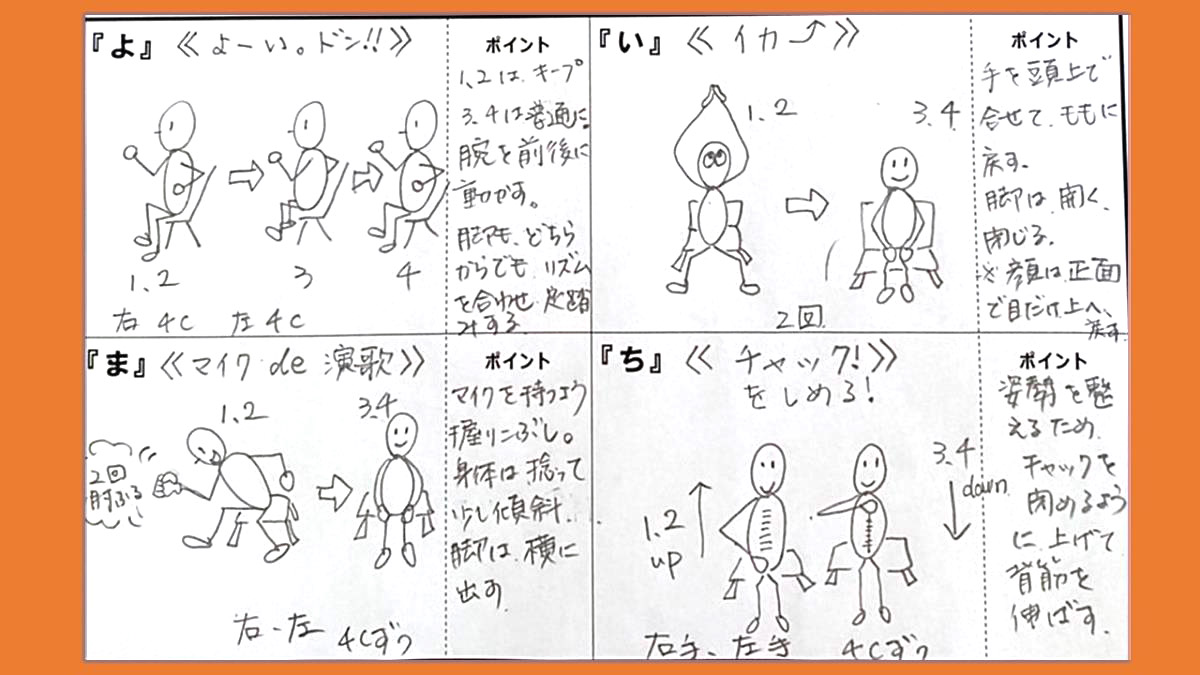 『よ』 《よーい。ドン!!》
ポイント
1、2は、キープ
3.4は普通に。
腕を前後に
動かす。
脚も、どちら
からでも、リズム
を合わせ、足踏
みする。
1、2
3
4
右 4C 左 4C
『い』 《イカ⤴》
ポイント
手を頭上で
合せて、ももに
戻す。
脚は、開く、
閉じる。
※顔は、正面
で目だけ上へ、
戻す。
1、2
3.4
2回
『ま』《マイク de 演歌》
ポイント
マイクを持つよう
握りこぶし。
身体は捻って
少し傾斜、
脚は、横に
出す。
1、2
3.4
2回
肘ふる
右、左 4Cずつ
『ち』 《チャック!》
をしめる!
ポイント
姿勢を整
えるため、
チャックを
閉めるよう
に、上げて
背筋を
伸ばす。
1、2
up
3.4
down
右手、左手 4Cずつ